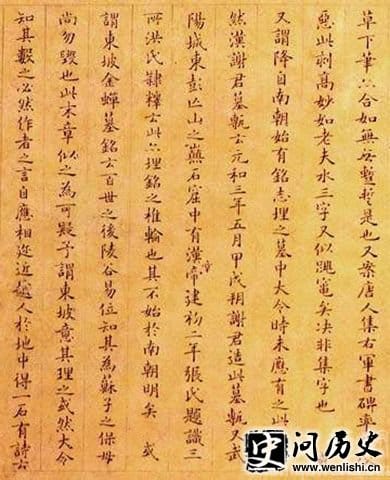 草下筆亦合如無安蹔是也又案唐人集右軍書碑率
惡此刻高妙如老夫水三字又似矣決非集字也
又謂降自南朝始有銘志埋之墓中大令時未應有之此
然漢謝君墓甎云元和三年五月甲戌朔謝君造此墓甎又武
陽城東彭亾山之巔石窟中有漢章帝建初二年張氏題識三
所洪氏隸釋云此亦埋銘之椎輪也其不始於南朝明矣 或
謂東坡金蟬墓銘云百世之後陵谷易位知其為蘇子之保母
尚勿毀也此末章似之為可疑予謂東坡意其理之或然大令
知其數之必然作者之言自應相邇近越人於地中得一石有詩云
史问历史
www.wenlishi.cn